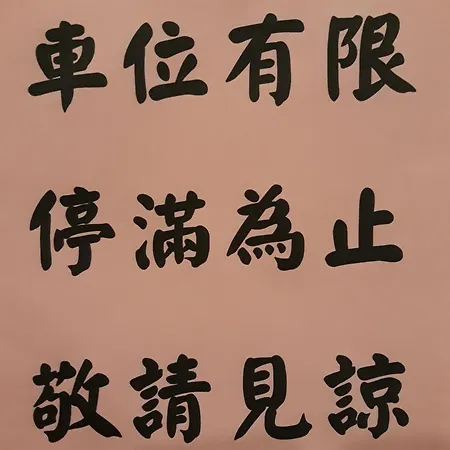 車位有限
停滿為止
敬請見諒